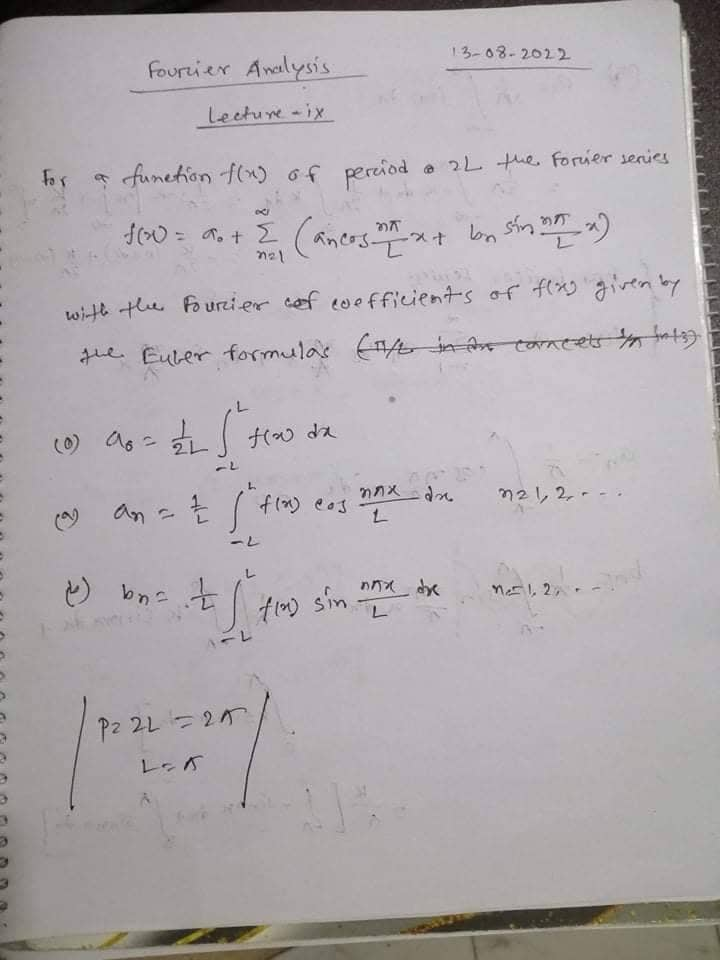 Fourier Analysis
13-08-2022
Lecture - ix
For a function f(x) of period 2L the Forier series
f(x) = a₀ + ∑_{n=1}^{∞} (an cos nπ/L x + bn sin nπ/L x)
with the Fourier cof coefficients of f(x) given by
the Euler formulas (π/L in dx cancels 1/π in (3))
(0) a₀ = 1/2L ∫_{-L}^{L} f(x) dx
(a) an = 1/L ∫_{-L}^{L} f(x) cos nπx/L dx n=1, 2, ....
(b) bn = 1/L ∫_{-L}^{L} f(x) sin nπx/L dx n=1, 2, ....
P= 2L = 2π
L=π